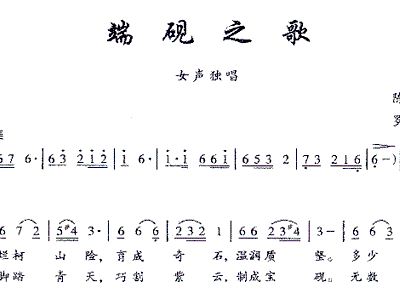 端砚之歌
女声独唱
陈
罗
6 7 6· | 6 3 2 1 2 | 1 6· | 1 6· 1 | 6 6 1 | 6 5 3 2 | 7 3 2 1 6 | 6 —)
6 7 2 | 5 #4 3 | 6 6 6 | 2 3 2 1 | 6 6 2 3 #4 | 3 6 7
烂柯 山 险，育成 奇 石，温润质 坚。 多少
脚踏 青 天，巧割 紫 云，制成宝 砚。 无数